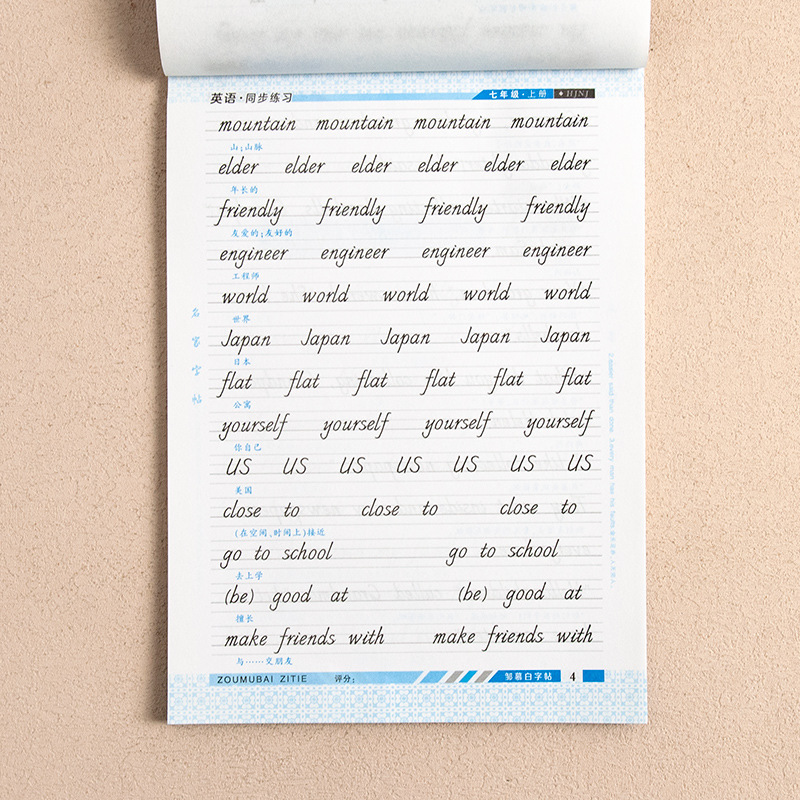 英语·同步练习 七年级·上册 HJNJ
mountain mountain mountain mountain
山;山脉
elder elder elder elder elder elder
年长的
friendly friendly friendly friendly
友爱的;友好的
engineer engineer engineer engineer
工程师
world world world world world
世界
Japan Japan Japan Japan Japan
日本
flat flat flat flat flat flat
公寓
yourself yourself yourself yourself
你自己
US US US US US US US
美国
close to close to close to
(在空间、时间上)接近
go to school go to school
去上学
(be) good at (be) good at
擅长
make friends with make friends with
与……交朋友
名家字帖
2.easier said than done. 3.every man has his faults
ZOUMUBAI ZITIE 评分: 邹慕白字帖 4